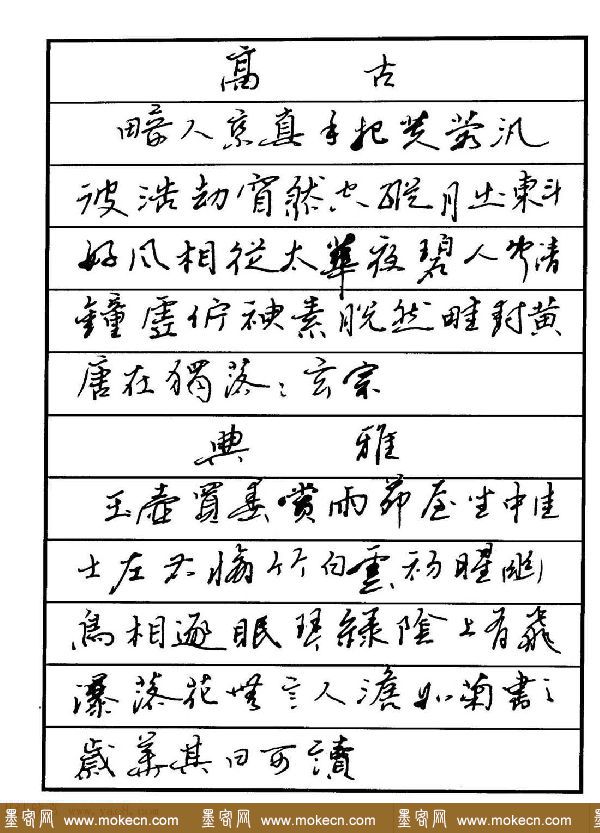 高古
畸人乘真手把芙蓉汎
彼浩劫窅然空蹤月出東斗
好風相從太華夜碧人聞清
鐘虛佇神素脫然畦封黃
唐在獨落〻玄宗
典雅
玉壺買春賞雨茆屋坐中佳
士左右脩竹白雲初晴幽
鳥相逐眠琴綠陰上有飛
瀑落花無言人澹如菊書之
歲華其曰可讀
墨客网 www.mokecn.com 墨客网 www.mokecn.com 墨客网 www.mokecn.com